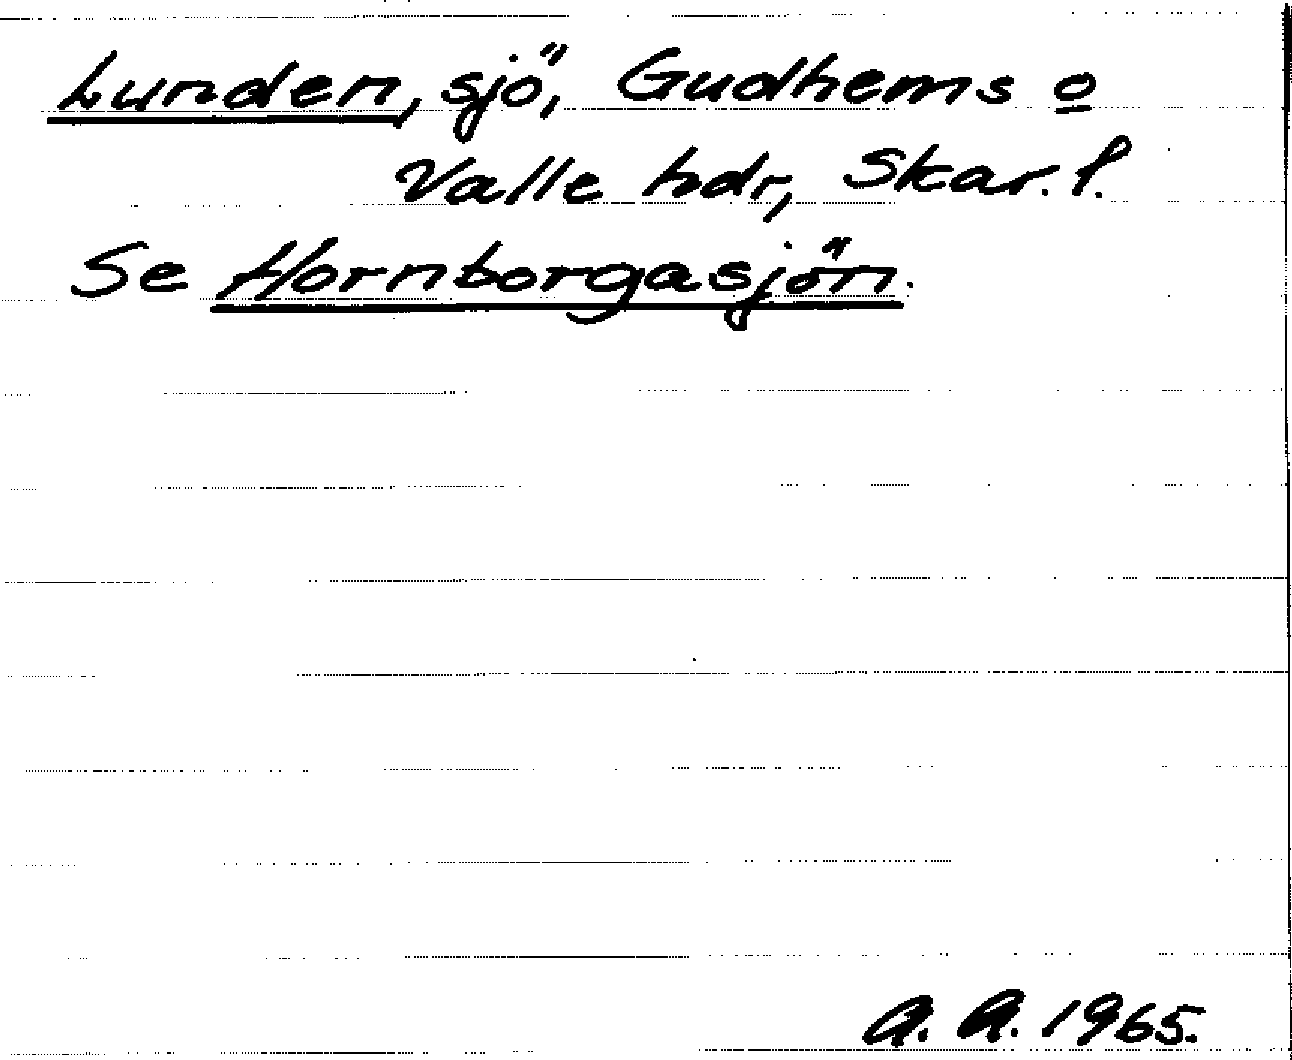 Lunden, sjö, Gudhems o
Valle hdr, Skar. l.
Se Hornborgasjön.
A. A. 1965.